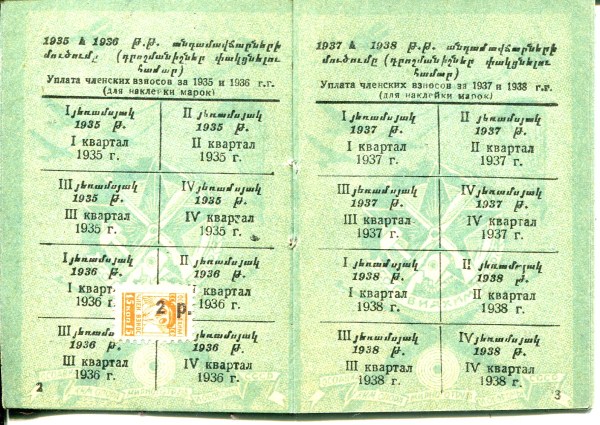 1935 և 1936 թ.թ. անդամավճարների
մուծումը (դրոշմանիշներ փակցնելու
համար)
Уплата членских взносов за 1935 и 1936 г.г.
(для наклейки марок)
I յեռամսյակ
1935 թ.
I квартал
1935 г.
II յեռամսյակ
1935 թ.
II квартал
1935 г.
III յեռամսյակ
1935 թ.
III квартал
1935 г.
IV յեռամսյակ
1935 թ.
IV квартал
1935 г.
I յեռամսյակ
1936 թ.
I
1936
II յեռամսյակ
1936 թ.
квартал
1936 г.
2 р.
III
1936
III квартал
1936 г.
յեռամսյակ
1936 թ.
IV квартал
1936 г.
2
1937 և 1938 թ.թ. անդամավճարների
մուծումը (դրոշմանիշներ փակցնելու
համար)
Уплата членских взносов за 1937 и 1938 г.г.
(для наклейки марок)
I յեռամսյակ
1937 թ.
I квартал
1937 г.
II յեռամսյակ
1937 թ.
II квартал
1937 г.
III յեռամսյակ
1937 թ.
III квартал
1937 г.
IV յեռամսյակ
1937 թ.
IV квартал
1937 г.
I յեռամսյակ
1938 թ.
I квартал
1938 г.
II յեռամսյակ
1938 թ.
II квартал
1938 г.
III յեռամսյակ
1938 թ.
III квартал
1938 г.
IV յեռամսյակ
1938 թ.
IV квартал
1938 г.
3